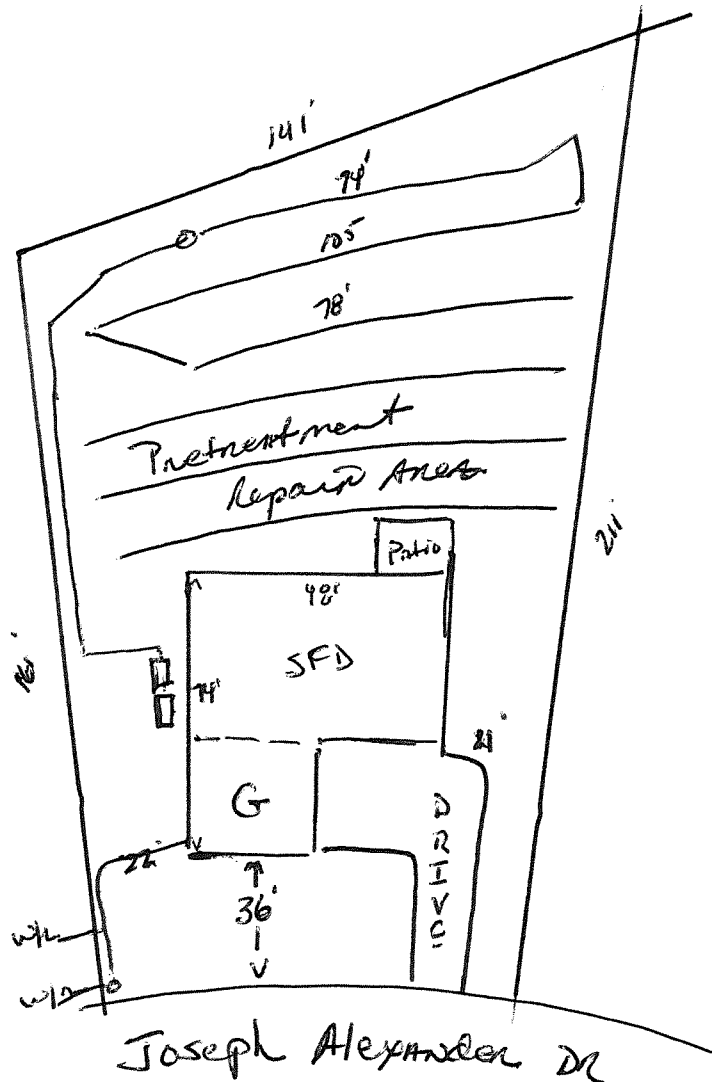 141'
94'
105
78'
Pretreatment
Repair Area
Patio
48'
211'
SFD
74'
21'
G
DRIVE
22'
36'
W/L
Joseph Alexander DR